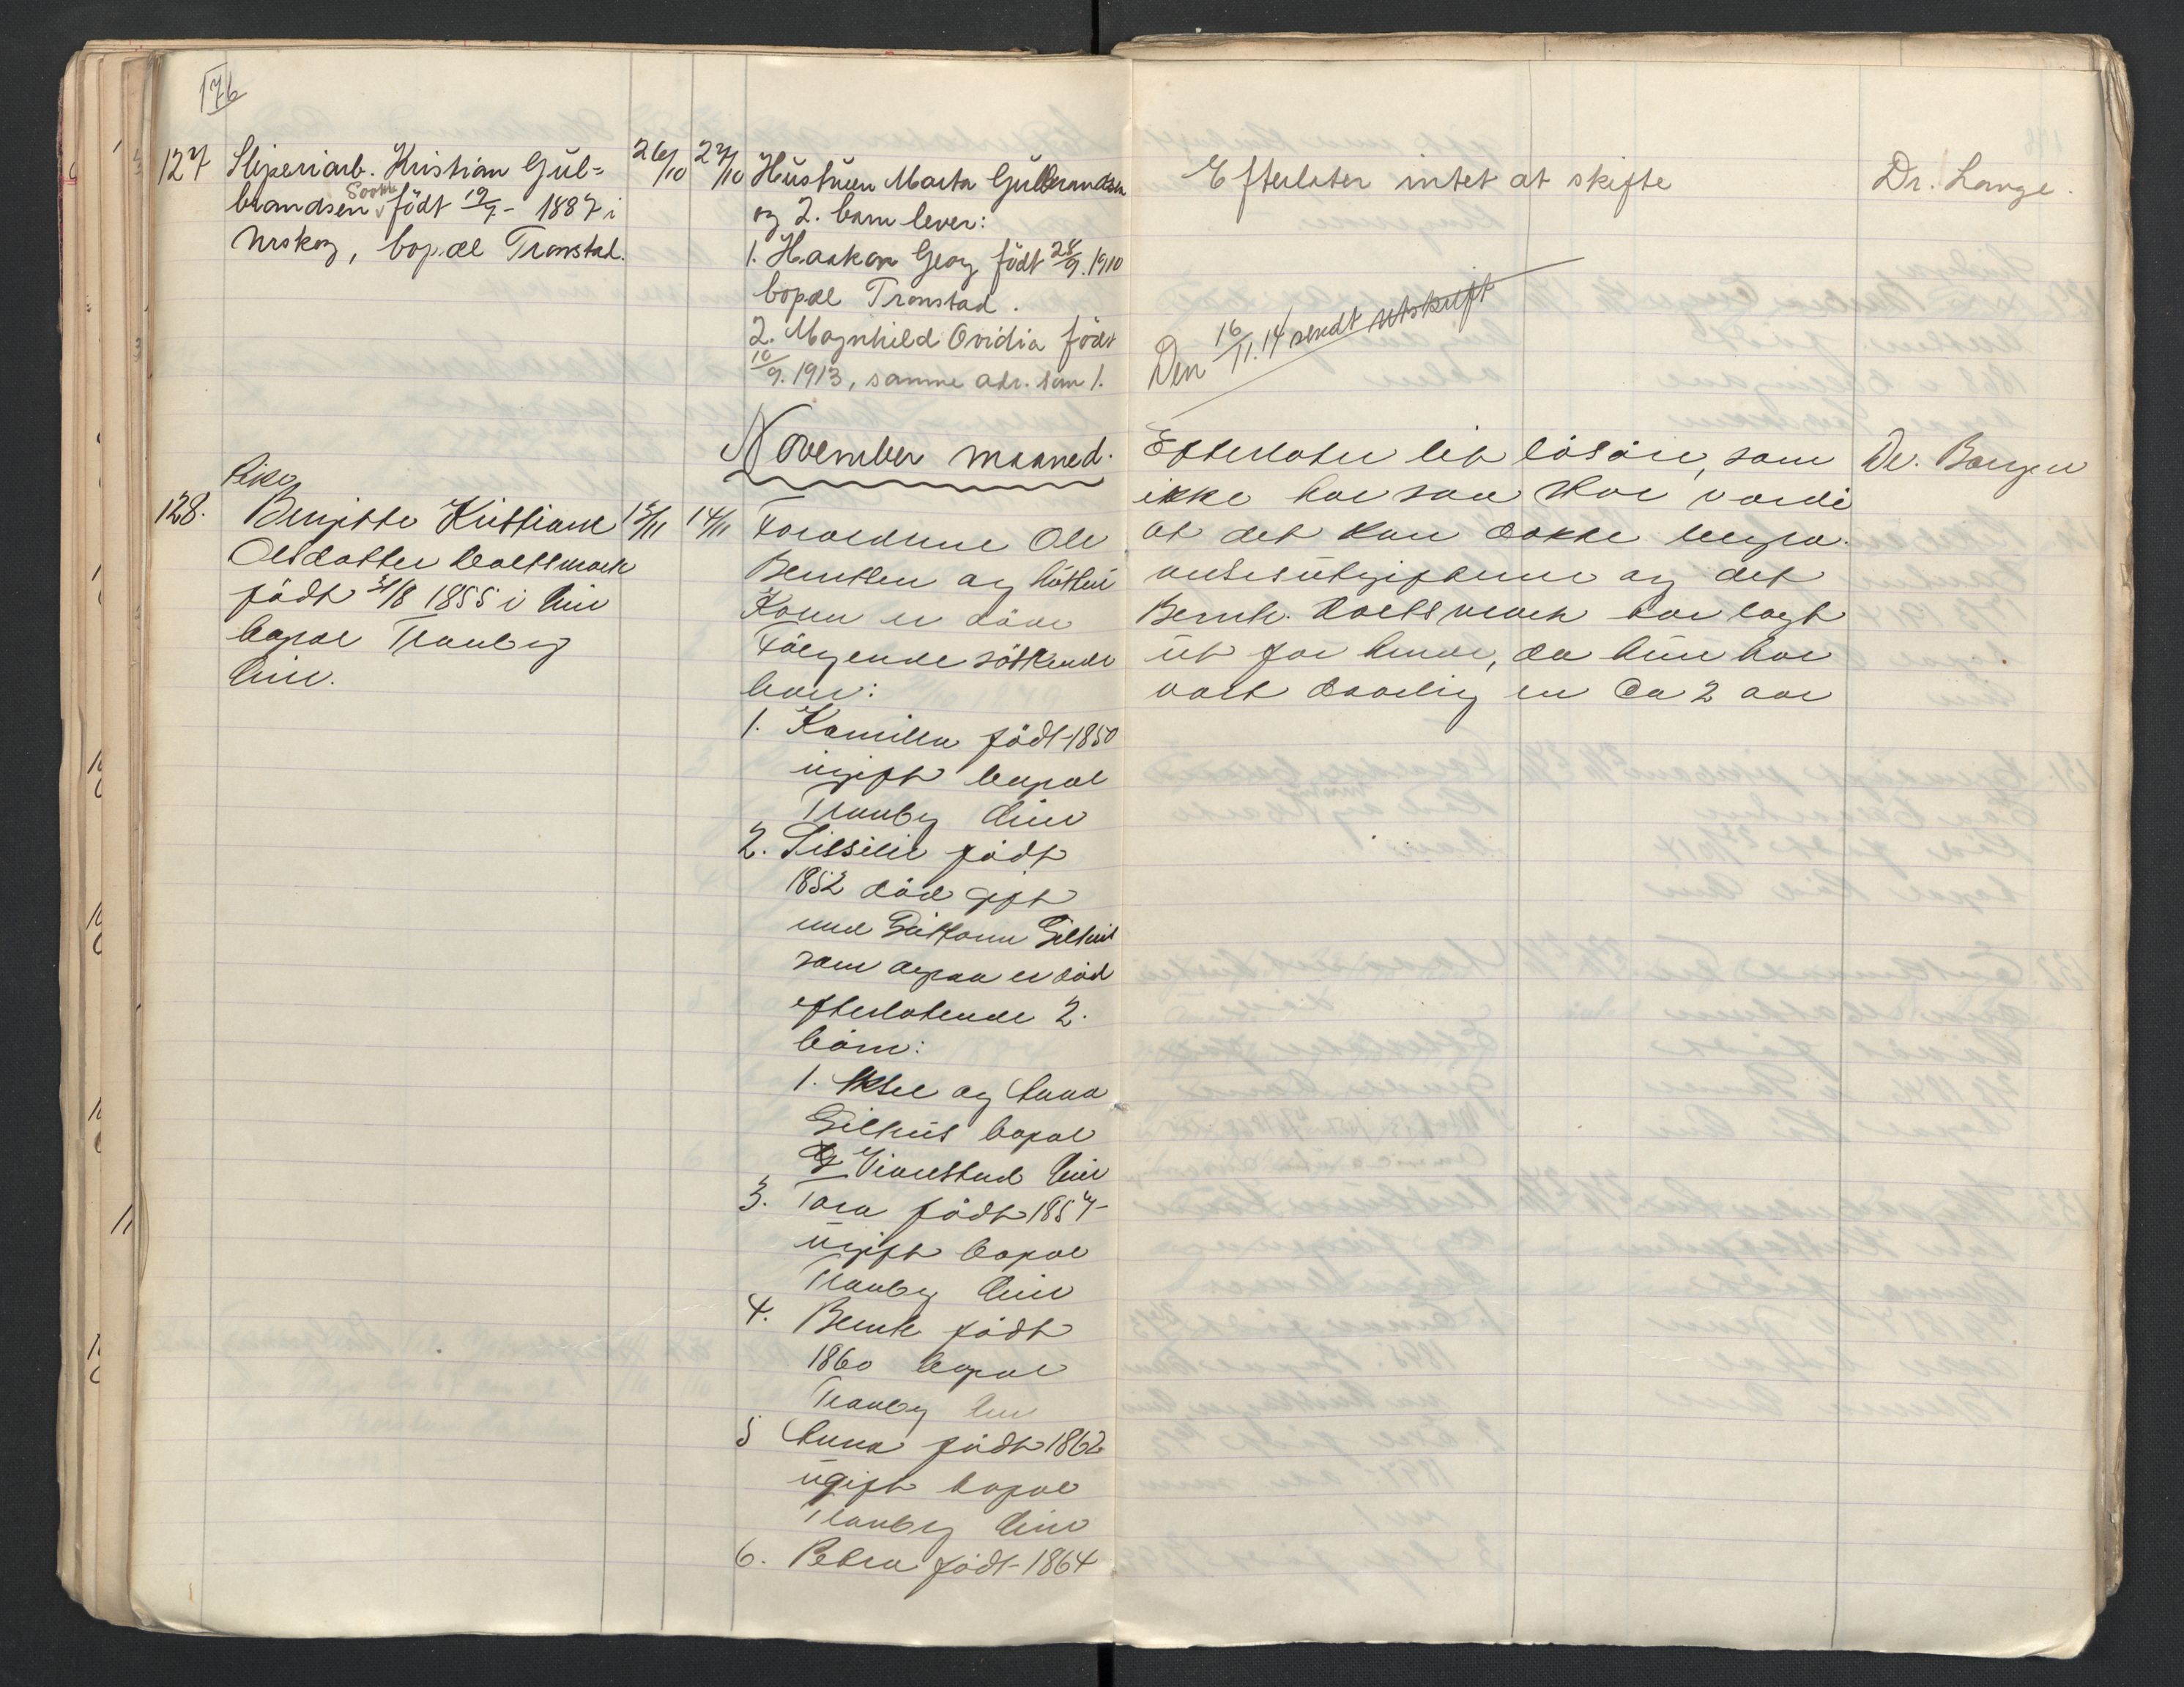 176
127 Sliperiarb. Kristian Gul=
brandsen Sookke født 19/7- 1887 i
Urskog, bopæl Tronstad.
26/10 27/10
Hustruen Marta Gulbrandsen
og 2. barn lever:
1. Haakon Georg født 28/9. 1910
bopæl Tronstad.
2. Magnhild Ovidia født
10/9. 1913, samme adr. som 1.
Efterlater intet at skifte
Dr. Lange.
Den 16/11. 14 sendt utskrift
November maaned.
Pike
128. Bergitte Kristiane
Olsdatter
født 31/8 1855 i Lier
bopæl Tranby
Lier.
13/11 14/11
Forældrene Ole
Berntsen og hustru
Karen er døde
Følgende søskende
lever:
1. Kamilla født 1850
ugift bopæl
Tranby Lier
2. Sissilie født
1852 død gift
med Guttorm Gilhus
som ogsaa er død
efterlatende 2.
børn:
1. Aksel og Anna
Gilhus bopæl
Lier
3. Tora født 1857
ugift bopæl
Tranby Lier
4. Bernt født
1860 bopæl
Tranby Lier
5 Anna født 1862
ugift bopæl
Tranby Lier
6. Petra født 1864
Efterlater lit løsøre, som
ikke har saa stor værdi
at det kan dække begra-
velsesutgifterne og det
Bernt har lagt
ut for hende, da hun har
vært daarlig en ca 2 aar
Dr. Borgen